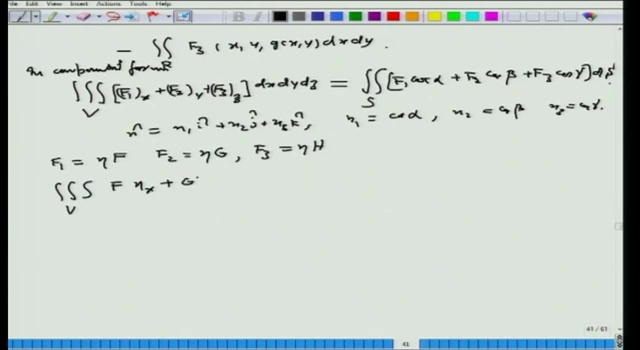 Edit View Insert Actions Tools Help
− ∬_R F₃ (x, y, g(x,y)) dx dy.
In component form
∭_V [(F₁)ₓ + (F₂)_y + (F₃)_z] dx dy dz = ∬_S [F₁ cos α + F₂ cos β + F₃ cos γ] dS
n̂ = n₁ î + n₂ ĵ + n₃ k̂, n₁ = cos α, n₂ = cos β n₃ = cos γ.
F₁ = η F F₂ = η G, F₃ = η H
∭_V F ηₓ + G
41 / 61
41